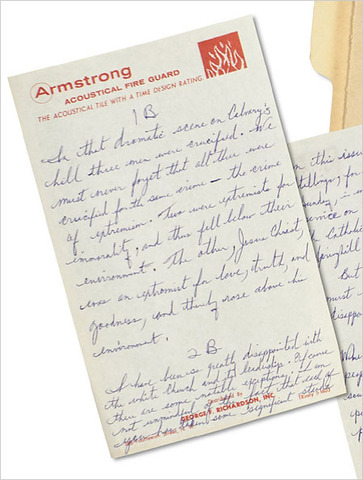 Armstrong
ACOUSTICAL FIRE GUARD
THE ACOUSTICAL TILE WITH A TIME DESIGN RATING
1B
In that dramatic scene on Calvary's
hill three men were crucified. We
must never forget that all three were
crucified for the same crime — the crime
of extremism. Two were extremists for
immorality, and thus fell below their
environment. The other, Jesus Christ,
was an extremist for love, truth, and
goodness, and thereby rose above his
environment.
2B
I have been so greatly disappointed with
the white Church and its leadership. Of course
there are some notable exceptions. I am
not unmindful of the fact that each of
you has taken some significant stands
GEORGE F. RICHARDSON, INC.
on this issue
for
on
Catholic
Springhill
But
must
disappo